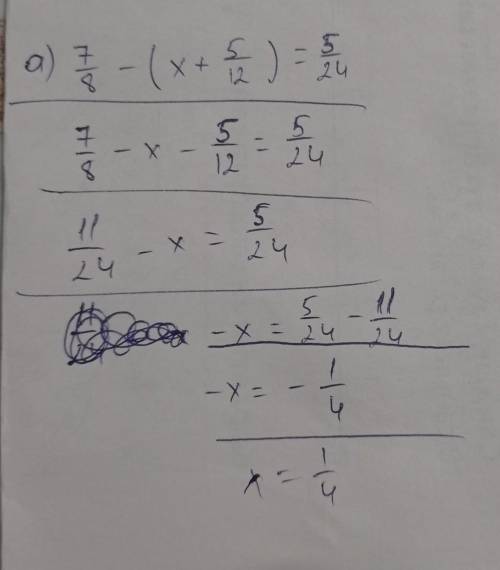 a) 7/8 - (x + 5/12) = 5/24
7/8 - x - 5/12 = 5/24
11/24 - x = 5/24
-x = 5/24 - 11/24
-x = - 1/4
x = 1/4